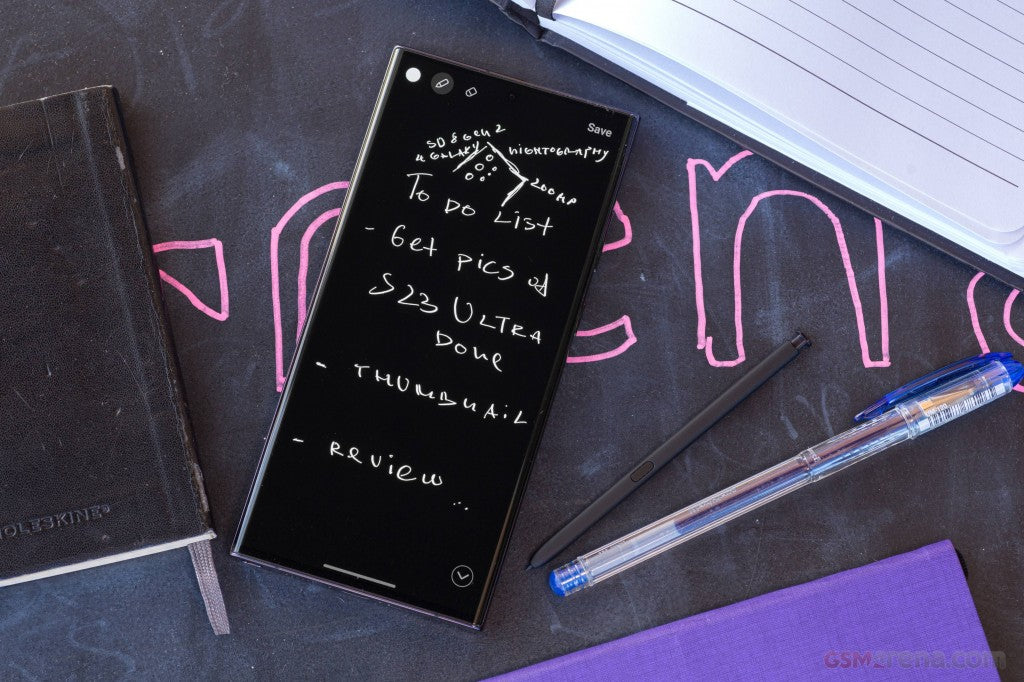 Save
SD 8 Gen 2
4 GALAXY
NIGHTOGRAPHY
200MP
To DO LIST
- Get pics of
S23 ULTRA
DONE
- THUMBNAIL
- REVIEW...
OLESKINE®
GSMarena.com